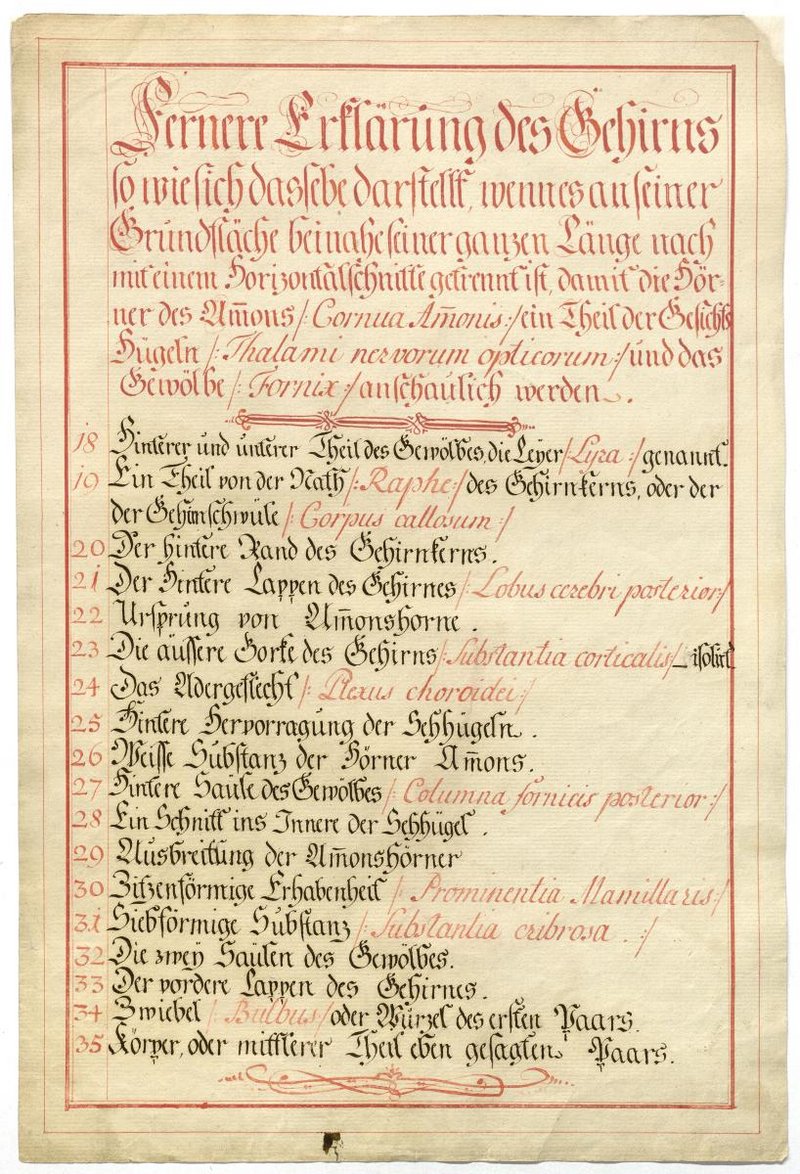 Fernere Erklärung des Gehirns
so wie sich dasselbe darstellt, wenn es an seiner
Grundfläche beinahe seiner ganzen Länge nach
mit einem Horizontalschnitte getrennt ist, damit die Hör-
ner des Am̄ons /: Cornua Am̄onis :/ ein Theil der Gesichts
Hügeln /: Thalami nervorum opticorum :/ und das
Gewölbe /: Fornix :/ anschaulich werden.
18 Hinterer und unterer Theil des Gewölbes, die Leyer /: Lyra :/ genannt.
19 Ein Theil von der Nath /: Raphe :/ des Gehirnkerns, oder der
der Gehirnschwüle /: Corpus callosum :/
20 Der hintere Rand des Gehirnkerns.
21 Der Hintere Lappen des Gehirnes /: Lobus cerebri posterior :/
22 Ursprung von Am̄onshorne.
23 Die äussere Gorke des Gehirns /: Substantia corticalis :/ isolirt
24 Das Adergeflecht /: Plexus choroidei :/
25 Hintere Hervorragung der Sehhügeln.
26 Weisse Substanz der Hörner Am̄ons.
27 Hintere Säule des Gewölbes /: Columna fornicis posterior :/
28 Ein Schnitt ins Innere der Sehhügel.
29 Ausbreitung der Am̄onshörner
30 Zitzenförmige Erhabenheit /: Prominentia Mamillaris :/
31 Siebförmige Substanz /: Substantia cribrosa. :/
32 Die zwey Säulen des Gewölbes.
33 Der vordere Lappen des Gehirnes.
34 Zwiebel /: Bulbus :/ oder Würzel des ersten Paars.
35 Körper, oder mittlerer Theil eben gesagten Paars.